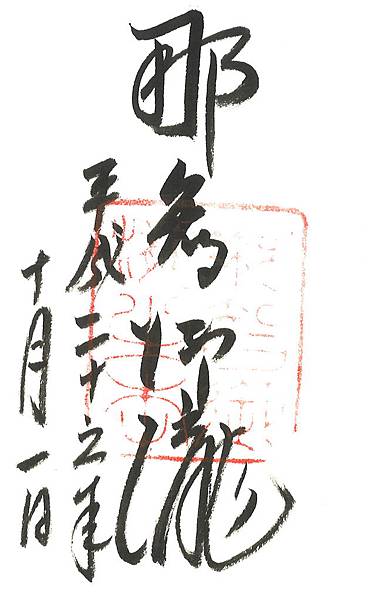 那智御瀧
平成二十三年
十月一日